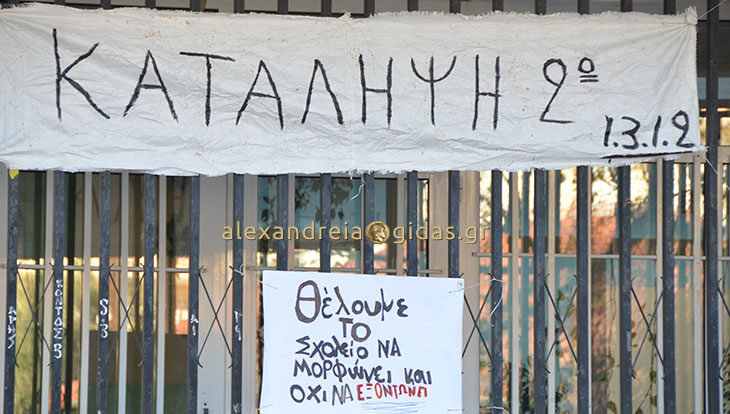 ΚΑΤΑΛΗΨΗ 2º
1.3.1.2
alexandreia gidas.gr
Θέλουμε
ΤΟ
ΣχΟλείο ΝΑ
ΜΟΡΦώνει και
ΟΧΙ ΝΑ ΕΞΟΝΤΩΝΕΙ
ΑΡΗΣ
ΚΟΝΤΟΣ